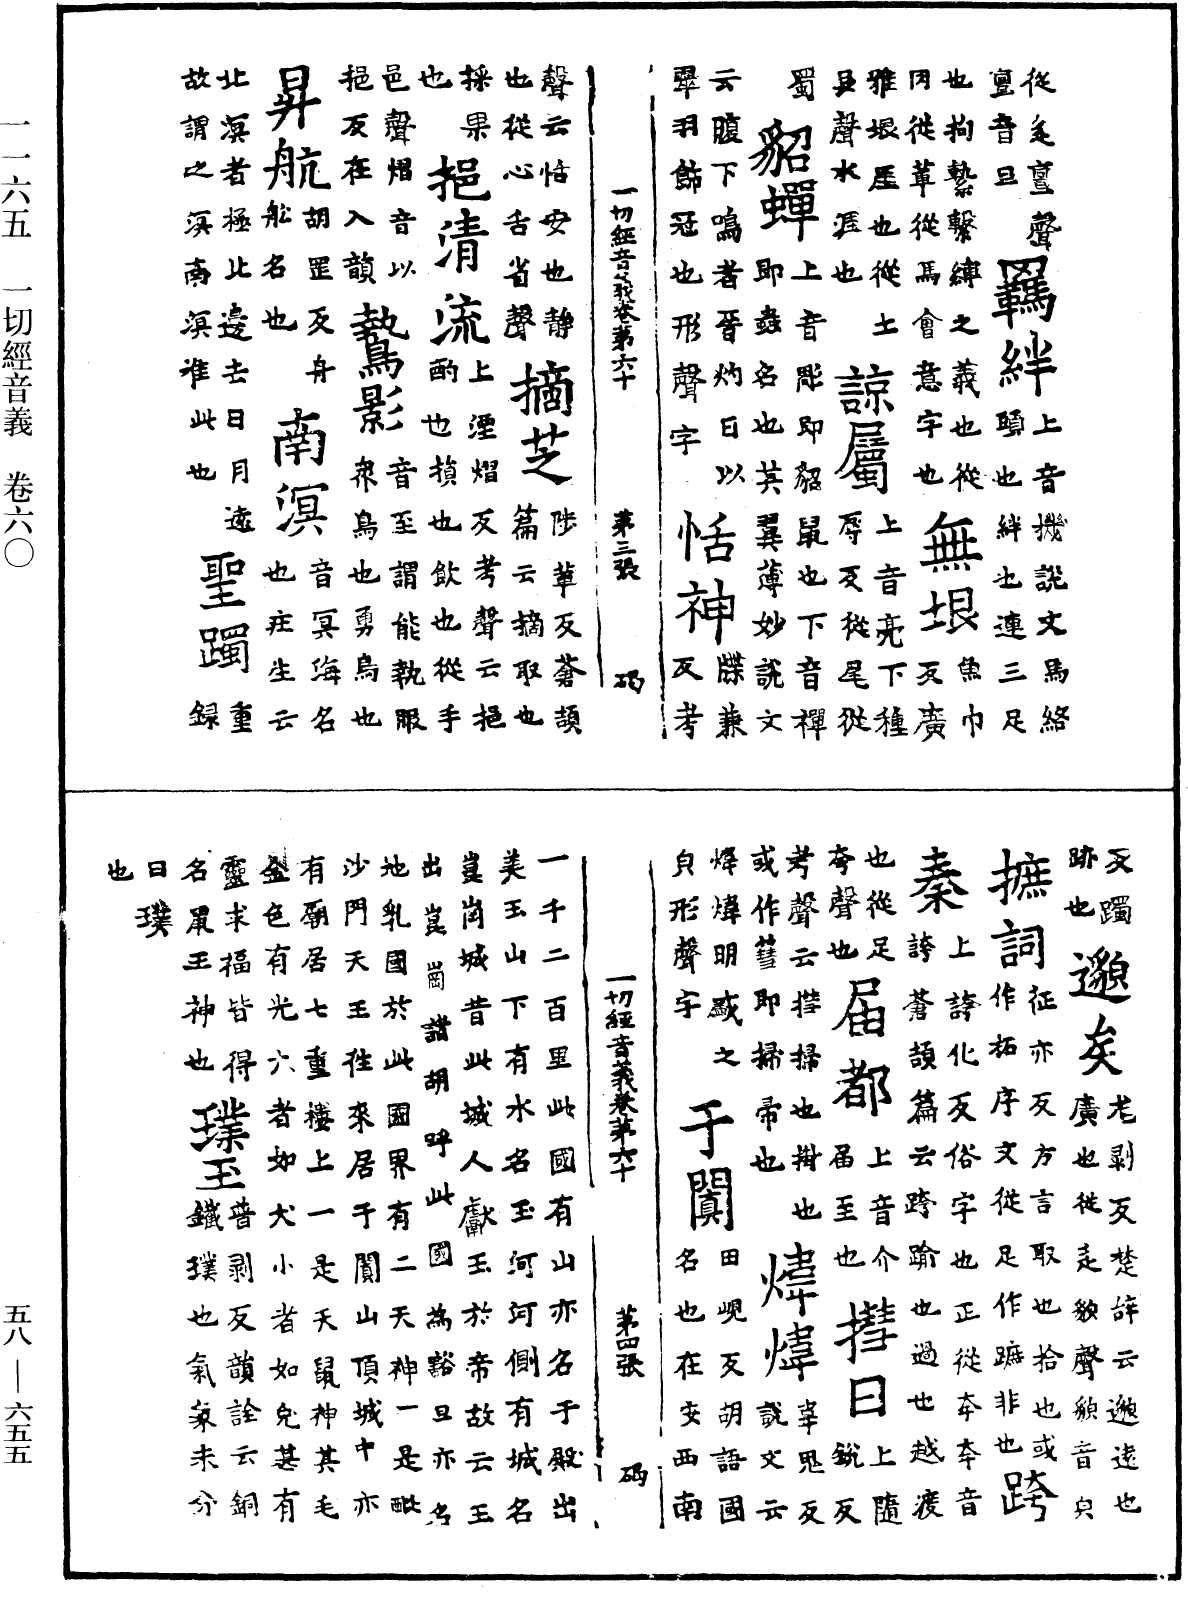 從辵亶聲亶音旦 羈絆 上音機說文馬絡頭也絆也連三足
也拘縶繫縛之義也從罔從革從馬會意字也 無垠 魚巾反廣
雅垠厓也從土艮聲水涯也 諒屬 上音亮下種辱反從尾從
蜀 貂蟬 上音彫即貂鼠也下音禪即蟲名也其翼薄妙說文
云腹下鳴者晉灼曰以翠羽飾冠也形聲字 恬神 牒兼反考
一切經音義卷第六十 第三張 碼
聲云恬安也靜也從心舌省聲 摘芝 陟革反蒼頡篇云摘取也
採果也 挹清流 上湮熠反考聲云挹酌也損也飲也從手
邑聲熠音以挹反在入韻 鷙影 音至謂能執服衆鳥也勇鳥也
昇航 胡罡反舟舩名也 南溟 音冥海名也莊生云
北溟者極北邊去日月遠故謂之溟南溟准此也 聖躅 重録
反躅跡也 邈矣 尨剥反楚辝云邈遠也廣也從辵貌聲貌音皃
摭詞 征亦反方言取也拾也或作拓序文從足作蹠非也 跨
秦 上誇化反俗字也正從夲夲音誇蒼頡篇云跨踰也過也越渡
也從足夸聲也 届都 上音介届至也 㨹曰 上隨銳反
考聲云㨹掃也拊也或作篲即掃帚也 煒煒 韋鬼反說文云
煒煒明盛之皃形聲字 于闐 田峴反胡語國名也在安西南
一切經音義卷第六十 第四張 碼
一千二百里此國有山亦名于殿出美玉山下有水名玉河河側有城名
崑崗城昔此城人獻玉於帝故云玉出崑崗諸胡呼此國為谿旦亦名
地乳國於此國界有二天神一是毗沙門天王徃來居于闐山頂城中亦
有廟居七重樓上一是天鼠神其毛金色有光大者如犬小者如兔甚有
靈求福皆得名鼠王神也 璞玉 普剥反韻詮云銅鐵璞也氣象未分
曰璞也
一一六五 一切經音義 卷六〇
五八—六五五